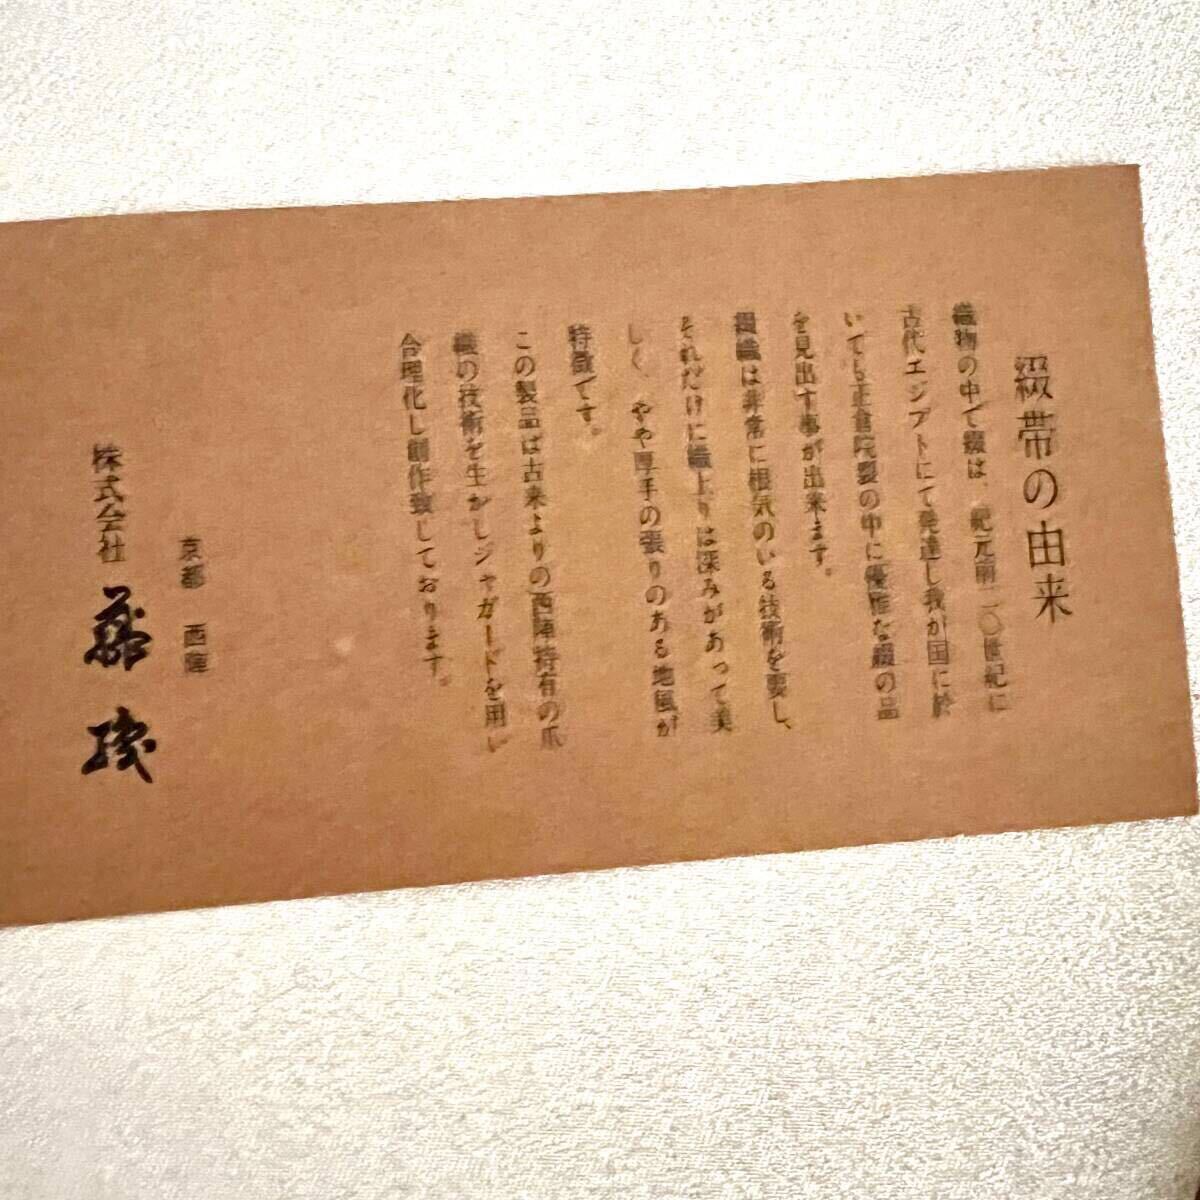 綴帯の由来
織物の中で綴は、紀元前二〇世紀に
古代エジプトにて発達し我が国に於
いても正倉院裂の中に優雅な綴の品
を見出す事が出来ます。
綴織は非常に根気のいる技術を要し、
それだけに織上りは深みがあって美
しく、やや厚手の張りのある地風が
特徴です。
この製品は古来よりの西陣特有の爪
織の技術を生かしジャガードを用い
合理化し創作致しております。
京都 西陣
株式会社